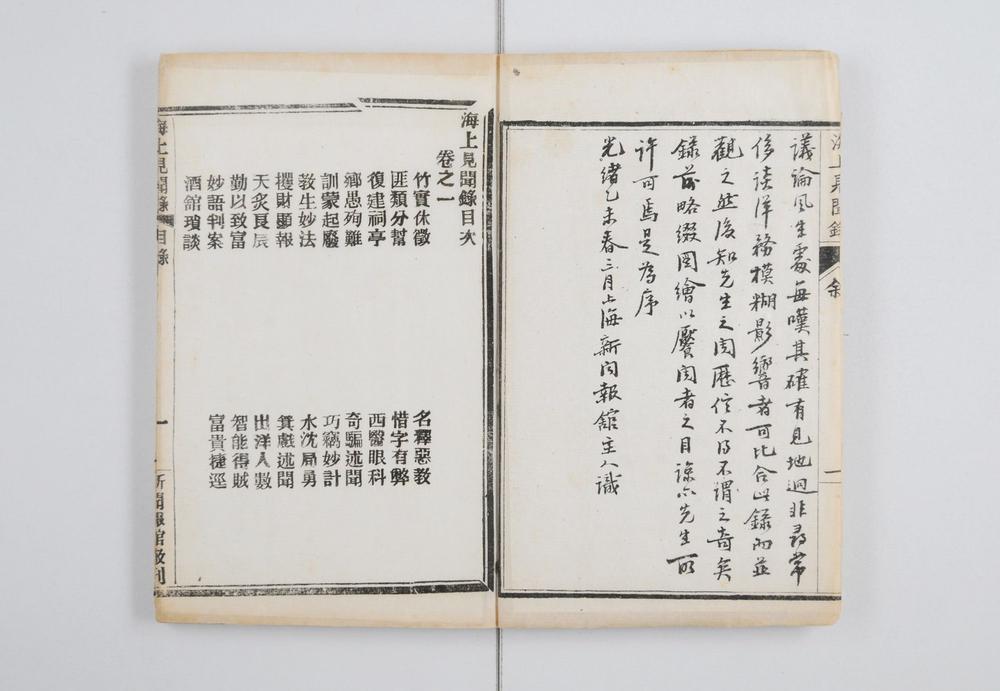 海上見聞錄
敘
議論風生處每嘆其確有見地迥非尋常
侈談洋務模糊影響者可比合此錄而並
觀之然後知先生之閱歷信不得不謂之奇矣
錄前略綴圖繪以饜閱者之目諒亦先生所
許可焉是為序
光緒乙未春三月上海新聞報館主人識
一
海上見聞錄目次
卷之一
竹實休徵
名釋惡教
匪類分幫
惜字有弊
復建祠亭
西醫眼科
鄉愚殉難
奇騙述聞
訓蒙起廢
巧竊妙計
教生妙法
水沈局勇
攫財顯報
箕戲述聞
天炙良辰
出洋人數
勤以致富
智能得賊
妙語判案
富貴捷逕
酒館瑣談
海上見聞錄
目錄
一
新聞報館發刊